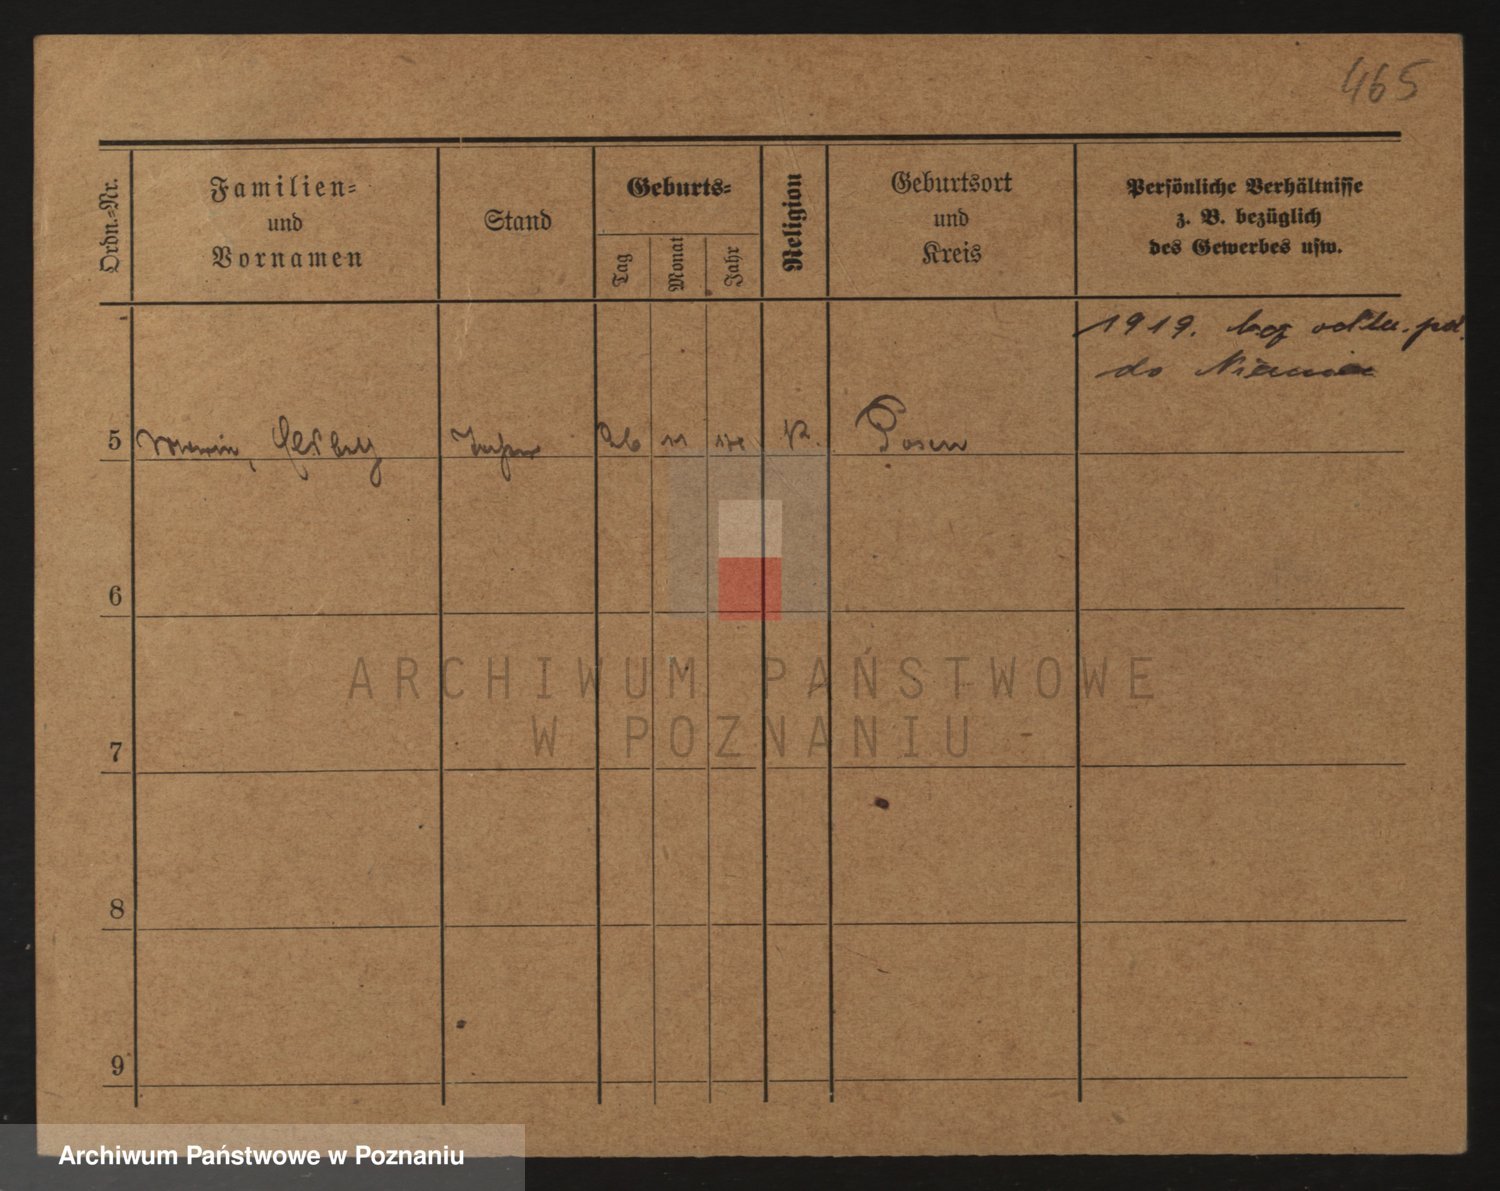 465
Ordn.-Nr.
Familien-
und
Vornamen
Stand
Geburts-
Tag
Monat
Jahr
Religion
Geburtsort
und
Kreis
Persönliche Verhältnisse
z. B. bezüglich
des Gewerbes usw.
1919.
do
5
26 11
Posen
6
7
8
9
ARCHIWUM PAŃSTWOWE
W POZNANIU
Archiwum Państwowe w Poznaniu